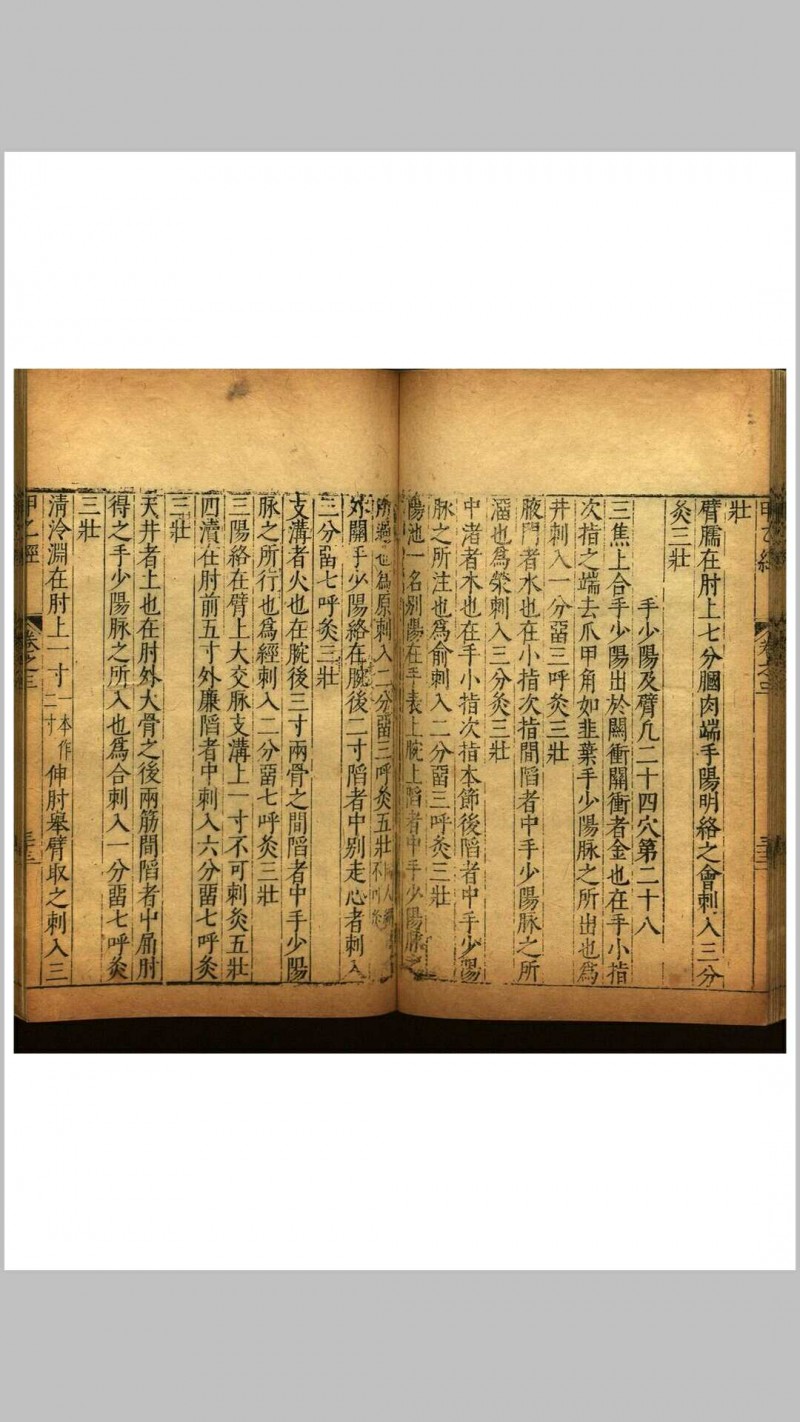 甲乙經　卷之三
壯
臂臑在肘上七分䐃肉端手陽明絡之會刺入三分
灸三壯
手少陽及臂凡二十四穴第二十八
三焦上合手少陽出於關衝關衝者金也在手小指
次指之端去爪甲角如韭葉手少陽脉之所出也爲
井刺入一分留三呼灸三壯
腋門者水也在小指次指間陷者中手少陽脉之所
溜也爲滎刺入三分灸三壯
中渚者木也在手小指次指本節後陷者中手少陽
脉之所注也爲俞刺入二分留三呼灸三壯
陽池一名别陽在手表上腕上陷者中手少陽脉之
所過也爲原刺入二分留三呼灸五壯
外關手少陽絡在腕後二寸陷者中别走心者刺入
三分留七呼灸三壯
支溝者火也在腕後三寸兩骨之間陷者中手少陽
脉之所行也爲經刺入二分留七呼灸三壯
三陽絡在臂上大交脉支溝上一寸不可刺灸五壯
四瀆在肘前五寸外廉陷者中刺入六分留七呼灸
三壯
天井者土也在肘外大骨之後兩筋間陷者中屈肘
得之手少陽脉之所入也爲合刺入一分留七呼灸
三壯
清泠淵在肘上一寸一本作二寸伸肘舉臂取之刺入三
甲乙經　卷之三